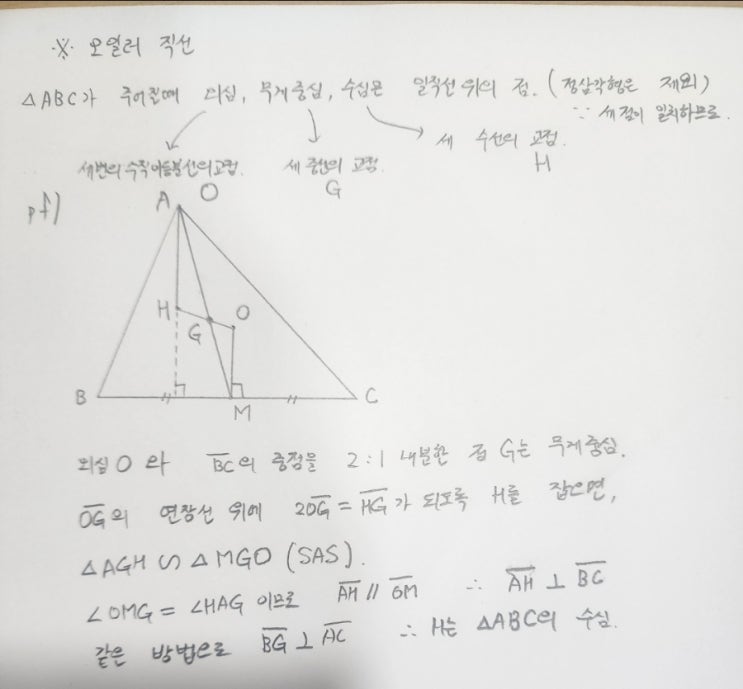 ※ 오일러 직선
△ABC가 주어질때 외심, 무게중심, 수심은 일직선 위의 점. (정삼각형은 제외)
∵ 세점이 일치하므로.
세변의 수직이등분선의 교점. O
세 중선의 교점. G
세 수선의 교점. H
pf)
A
H
G
O
B
M
C
외심 O 와 BC의 중점을 2:1 내분한 점 G는 무게중심.
OG의 연장선 위에 2OG = HG가 되도록 H를 잡으면,
△AGH ∽ △MGO (SAS).
∠OMG = ∠HAG 이므로 AH // OM ∴ AH ⊥ BC
같은 방법으로 BG ⊥ AC ∴ H는 △ABC의 수심.